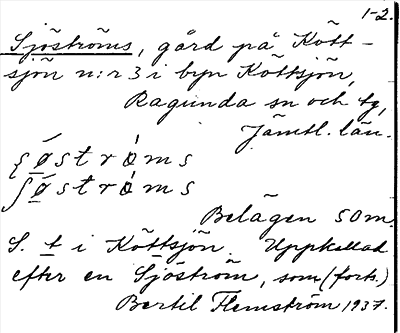 1-2.
Sjöströms, gård på Kött-
sjön n:r 3 i byn Köttsjön,
Ragunda sn och tg,
Jämtl. län.
ʂøströms
ʃøströms
Belägen som
S. t i Köttsjön. Uppkallad
efter en Sjöström, som (forts.)
Bertil Flemström 1937.